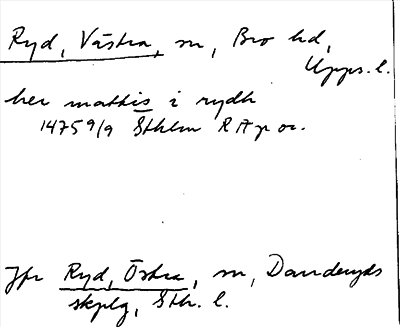 Ryd, Västra, sn, Bro hd,
Upps. l.
her mattis i rydh
1475 9/9 Sthlm RA p or.
Jfr Ryd, Östra, sn, Danderyds
skplg, Sth. l.